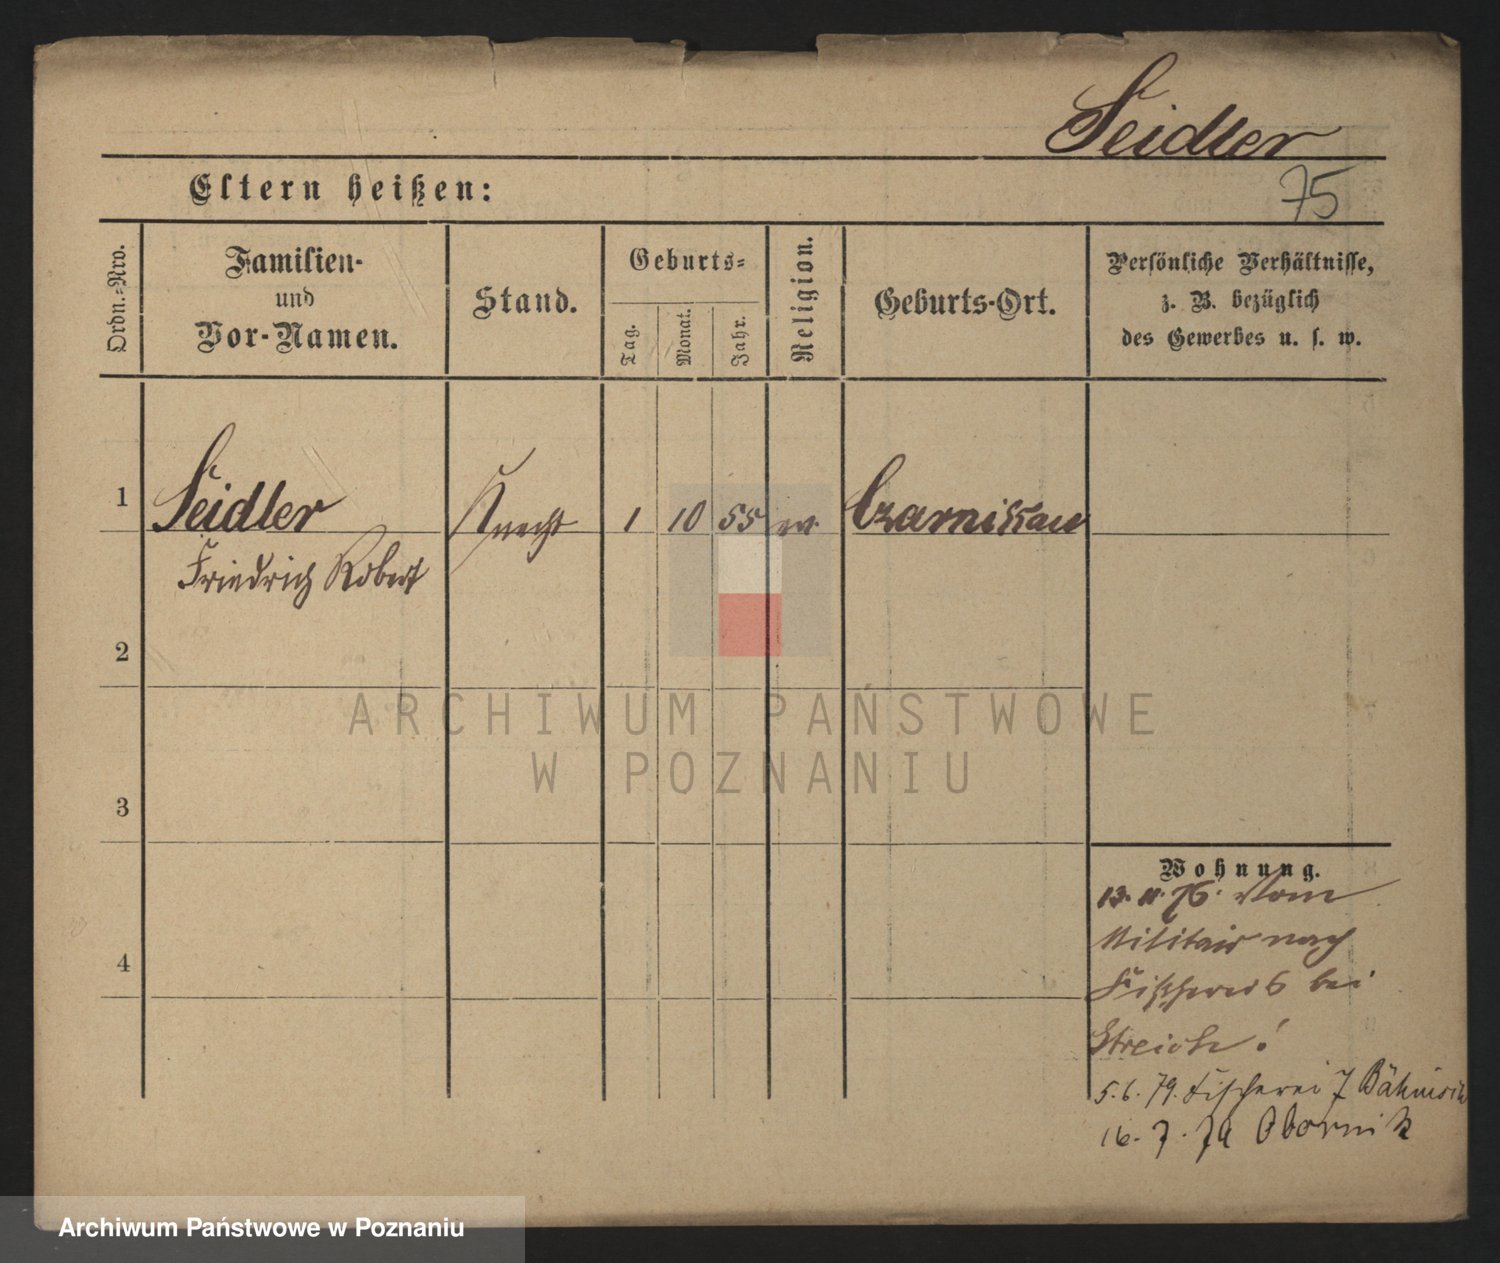 Seidler
Eltern heißen:
75
Ordn.-Nro.
Familien-
und
Vor-Namen.
Stand.
Geburts-
Tag.
Monat.
Jahr.
Religion.
Geburts-Ort.
Persönliche Verhältnisse,
z. B. bezüglich
des Gewerbes u. s. w.
1
Seidler
Knecht
1
10
55
ev.
Czarnikau
Friedrich Robert
2
3
4
ARCHIWUM PAŃSTWOWE
W POZNANIU
Wohnung.
13. 11. 76. Vom
Militair nach
Fischerei 6 bei
Streich!
5. 6. 79. Fischerei 7
16. 7. 79 Obornik
Archiwum Państwowe w Poznaniu